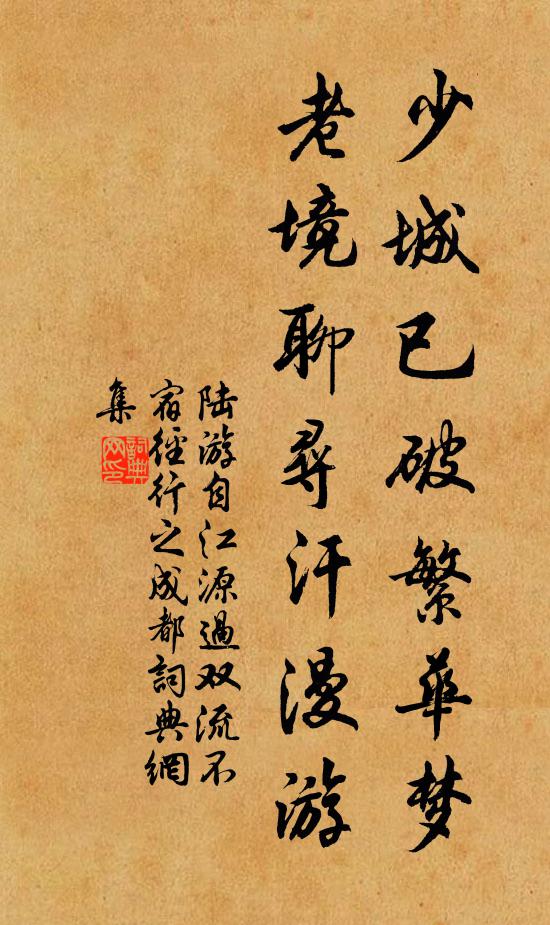 少城已破繁华梦
老境聊寻汗漫游
陆游自江源過双流不
宿徑行之成都詞典網
集
詞典网